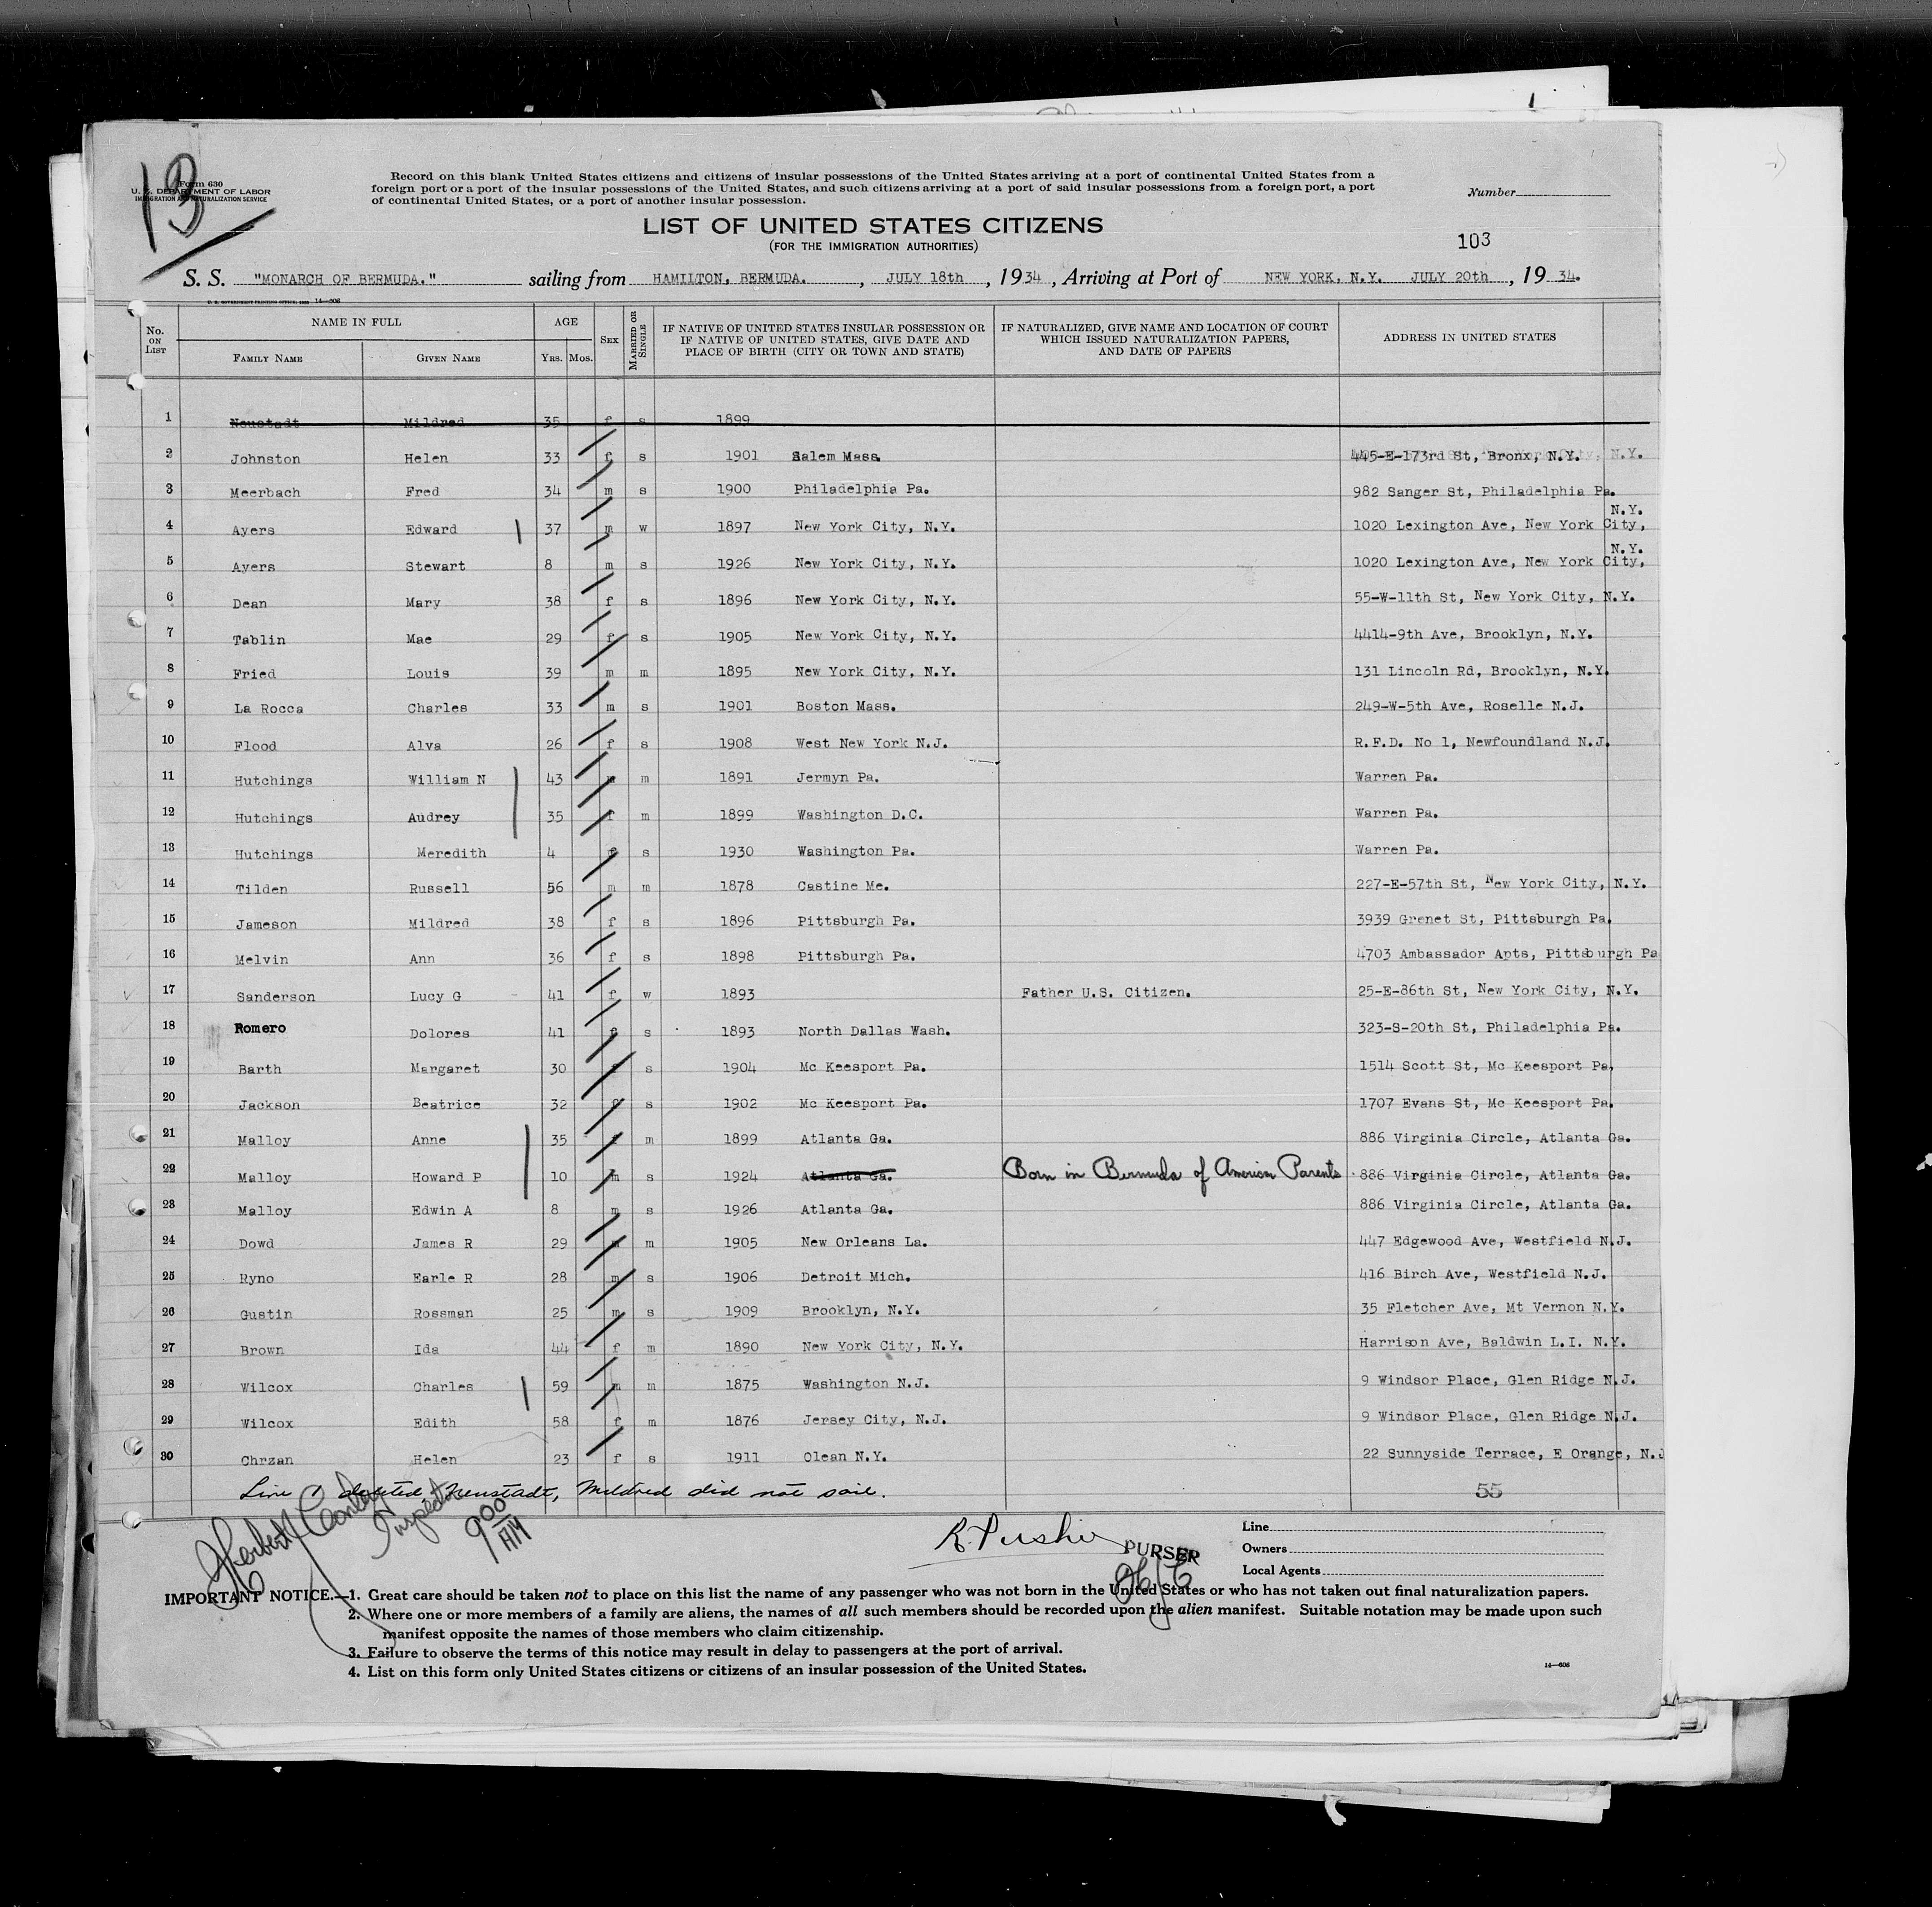 13
Form 630
U. S. DEPARTMENT OF LABOR
IMMIGRATION AND NATURALIZATION SERVICE
Record on this blank United States citizens and citizens of insular possessions of the United States arriving at a port of continental United States from a
foreign port or a port of the insular possessions of the United States, and such citizens arriving at a port of said insular possessions from a foreign port, a port
of continental United States, or a port of another insular possession.
Number
LIST OF UNITED STATES CITIZENS
(FOR THE IMMIGRATION AUTHORITIES)
103
S. S. "MONARCH OF BERMUDA." sailing from HAMILTON, BERMUDA. , JULY 18th , 1934 , Arriving at Port of NEW YORK, N.Y. JULY 20th , 19 34.
No. ON LIST
NAME IN FULL
FAMILY NAME GIVEN NAME
AGE
YRS. MOS.
SEX
MARRIED OR SINGLE
IF NATIVE OF UNITED STATES INSULAR POSSESSION OR
IF NATIVE OF UNITED STATES, GIVE DATE AND
PLACE OF BIRTH (CITY OR TOWN AND STATE)
IF NATURALIZED, GIVE NAME AND LOCATION OF COURT
WHICH ISSUED NATURALIZATION PAPERS,
AND DATE OF PAPERS
ADDRESS IN UNITED STATES
1 Neustadt Mildred 35 f s 1899
2 Johnston Helen 33 f s 1901 Salem Mass. 445-E-173rd St, Bronx, N.Y. N.Y.
3 Meerbach Fred 34 m s 1900 Philadelphia Pa. 982 Sanger St, Philadelphia Pa.
4 Ayers Edward 37 m w 1897 New York City, N.Y. 1020 Lexington Ave, New York City, N.Y.
5 Ayers Stewart 8 m s 1926 New York City, N.Y. 1020 Lexington Ave, New York City, N.Y.
6 Dean Mary 38 f s 1896 New York City, N.Y. 55-W-11th St, New York City, N.Y.
7 Tablin Mae 29 f s 1905 New York City, N.Y. 4414-9th Ave, Brooklyn, N.Y.
8 Fried Louis 39 m m 1895 New York City, N.Y. 131 Lincoln Rd, Brooklyn, N.Y.
9 La Rocca Charles 33 m s 1901 Boston Mass. 249-W-5th Ave, Roselle N.J.
10 Flood Alva 26 f s 1908 West New York N.J. R.F.D. No 1, Newfoundland N.J.
11 Hutchings William N 43 m m 1891 Jermyn Pa. Warren Pa.
12 Hutchings Audrey 35 f m 1899 Washington D.C. Warren Pa.
13 Hutchings Meredith 4 s 1930 Washington Pa. Warren Pa.
14 Tilden Russell 56 m m 1878 Castine Me. 227-E-57th St, New York City, N.Y.
15 Jameson Mildred 38 f s 1896 Pittsburgh Pa. 3939 Grenet St, Pittsburgh Pa.
16 Melvin Ann 36 f s 1898 Pittsburgh Pa. 4703 Ambassador Apts, Pittsburgh Pa
17 Sanderson Lucy G 41 f w 1893 Father U.S. Citizen. 25-E-86th St, New York City, N.Y.
18 Romero Dolores 41 f s 1893 North Dallas Wash. 323-S-20th St, Philadelphia Pa.
19 Barth Margaret 30 f s 1904 Mc Keesport Pa. 1514 Scott St, Mc Keesport Pa.
20 Jackson Beatrice 32 f s 1902 Mc Keesport Pa. 1707 Evans St, Mc Keesport Pa.
21 Malloy Anne 35 f m 1899 Atlanta Ga. 886 Virginia Circle, Atlanta Ga.
22 Malloy Howard P 10 m s 1924 Atlanta Ga. Born in Bermuda of American Parents 886 Virginia Circle, Atlanta Ga.
23 Malloy Edwin A 8 m s 1926 Atlanta Ga. 886 Virginia Circle, Atlanta Ga.
24 Dowd James R 29 m m 1905 New Orleans La. 447 Edgewood Ave, Westfield N.J.
25 Ryno Earle R 28 m s 1906 Detroit Mich. 416 Birch Ave, Westfield N.J.
26 Gustin Rossman 25 m s 1909 Brooklyn, N.Y. 35 Fletcher Ave, Mt Vernon N.Y.
27 Brown Ida 44 f m 1890 New York City, N.Y. Harrison Ave, Baldwin L.I. N.Y.
28 Wilcox Charles 59 m m 1875 Washington N.J. 9 Windsor Place, Glen Ridge N.J.
29 Wilcox Edith 58 f m 1876 Jersey City, N.J. 9 Windsor Place, Glen Ridge N.J.
30 Chrzan Helen 23 f s 1911 Olean N.Y. 22 Sunnyside Terrace, E Orange, N.J
Line 1 deleted, Neustadt, Mildred did not sail.
55
Inspector
9 00 AM
PURSER
Line
Owners
Local Agents
IMPORTANT NOTICE.—1. Great care should be taken not to place on this list the name of any passenger who was not born in the United States or who has not taken out final naturalization papers.
2. Where one or more members of a family are aliens, the names of all such members should be recorded upon the alien manifest. Suitable notation may be made upon such
manifest opposite the names of those members who claim citizenship.
3. Failure to observe the terms of this notice may result in delay to passengers at the port of arrival.
4. List on this form only United States citizens or citizens of an insular possession of the United States.
14—606